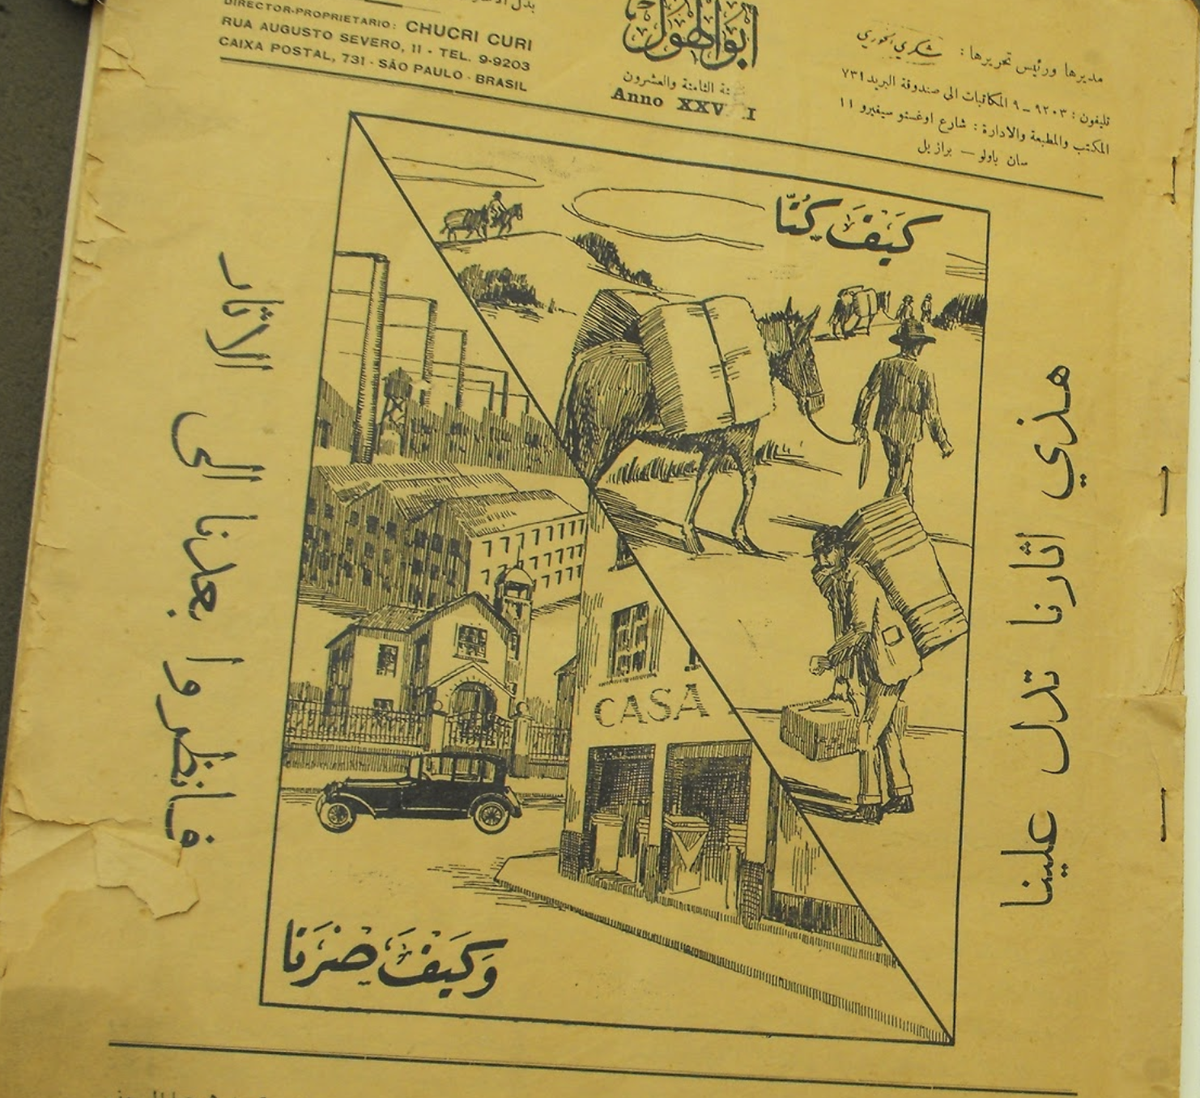 DIRECTOR-PROPRIETARIO: CHUCRI CURI
RUA AUGUSTO SEVERO, 11 - TEL. 9-9203
CAIXA POSTAL, 731 - SÃO PAULO - BRASIL
ابو الهول
الثامنة والعشرون
Anno
مديرها ورئيس تحريرها: شكري الخوري
تليفون: ٩٢٠٣ – ٩ المكاتبات الى صندوقة البريد ٧٣١
المكتب والمطبعة والادارة: شارع اوغستو سيفيرو ١١
سان باولو – برازيل
كَيَفَ كُنَّا
هذي اثارنا تدل علينا
CASA
وَكَيَفَ صِرَنَا
فانظروا بعدنا الى الاثار